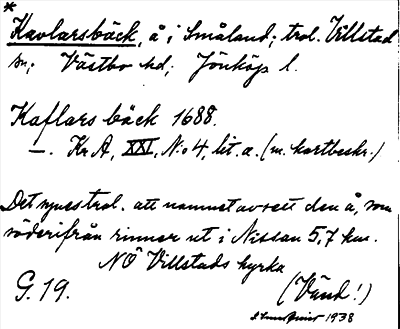 *
Kavlarsbäck, å i Småland; trol. Villstad
sn; Västbo hd; Jönköp l.
Kaflars bäck 1688.
—. Kr A, XXI, N:o 4, lit. a. (m. kartbeskr.)
Det synes trol. att namnet avsett den å, som
söderifrån rinner ut i Nissan 5,7 km.
NÖ Villstads kyrka
G. 19.
(Vänd!)
1938